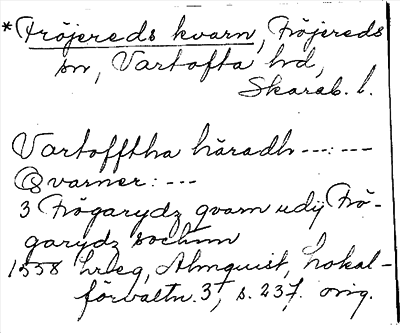 *Fröjereds kvarn, Fröjereds
sn, Vartofta hd,
Skarab. l.
Vartofftha häradh ---: ---
Qvarner: ---
3 Frögarydz qvarn udij Frö-
garydz sochnn
1558 hrleg, Almquist, Lokal-
förvaltn. 3, s. 237. orig.